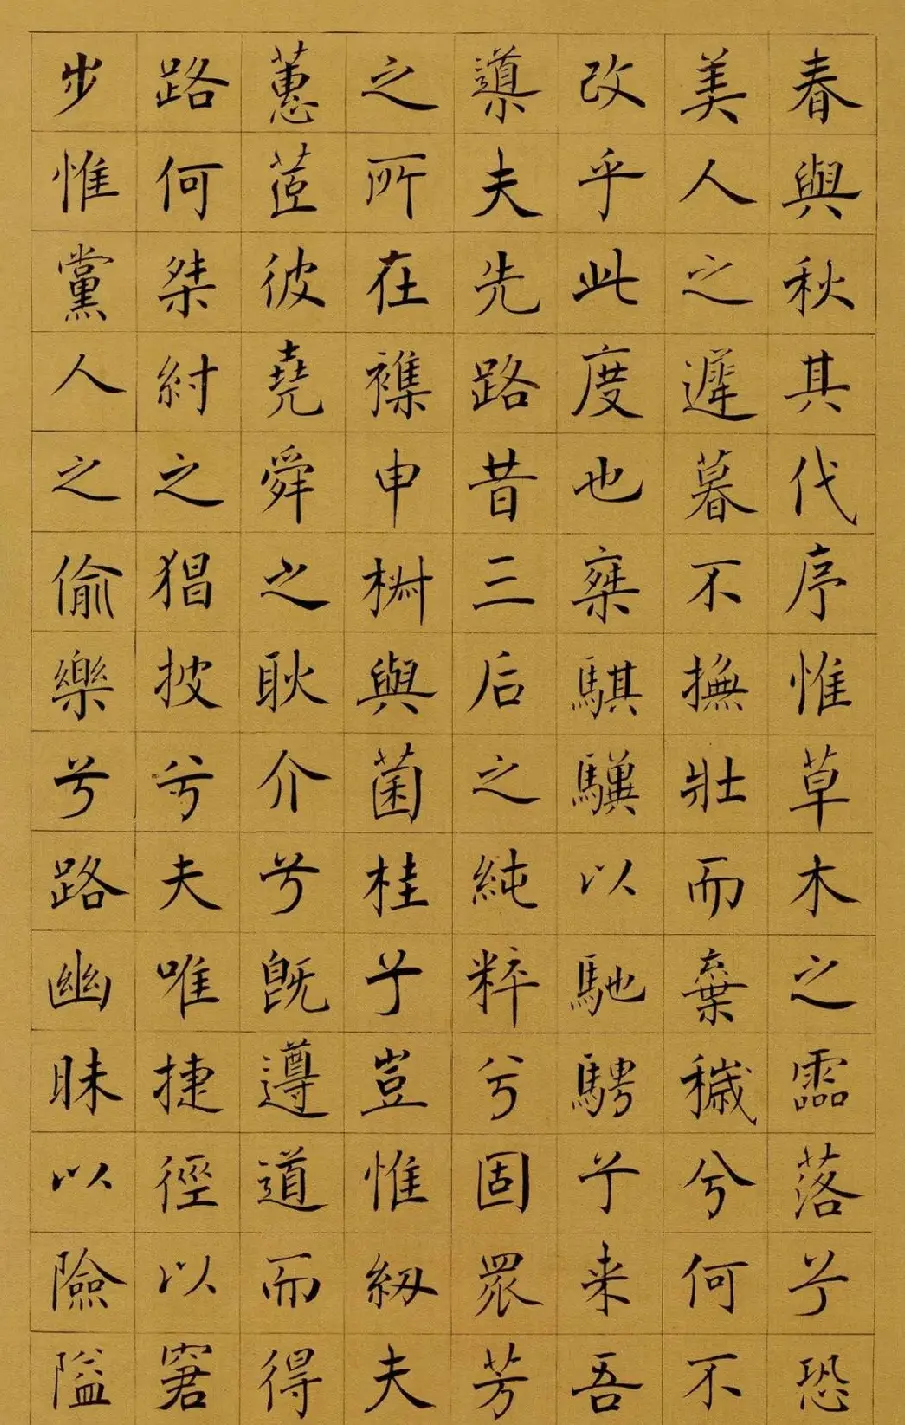 春與秋其代序惟草木之霝落兮恐
美人之遲暮不撫壯而棄穢兮何不
改乎此度也椉騏驥以馳騁兮来吾
導夫先路昔三后之純粹兮固眾芳
之所在襍申椒與菌桂兮豈惟紉夫
蕙茝彼堯舜之耿介兮既遵道而得
路何桀紂之猖披兮夫唯捷徑以窘
步惟黨人之偷樂兮路幽昧以險隘